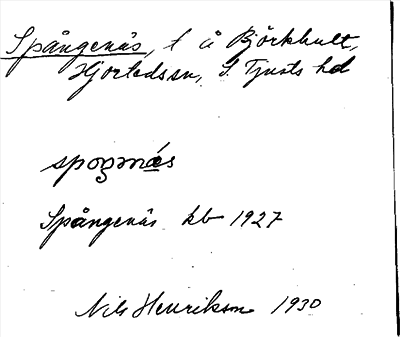 Spångenäs, t å Björkhult,
Hjorteds sn, S. Tjusts hd
Spångenäs kb 1927
Nils Henrikson 1930